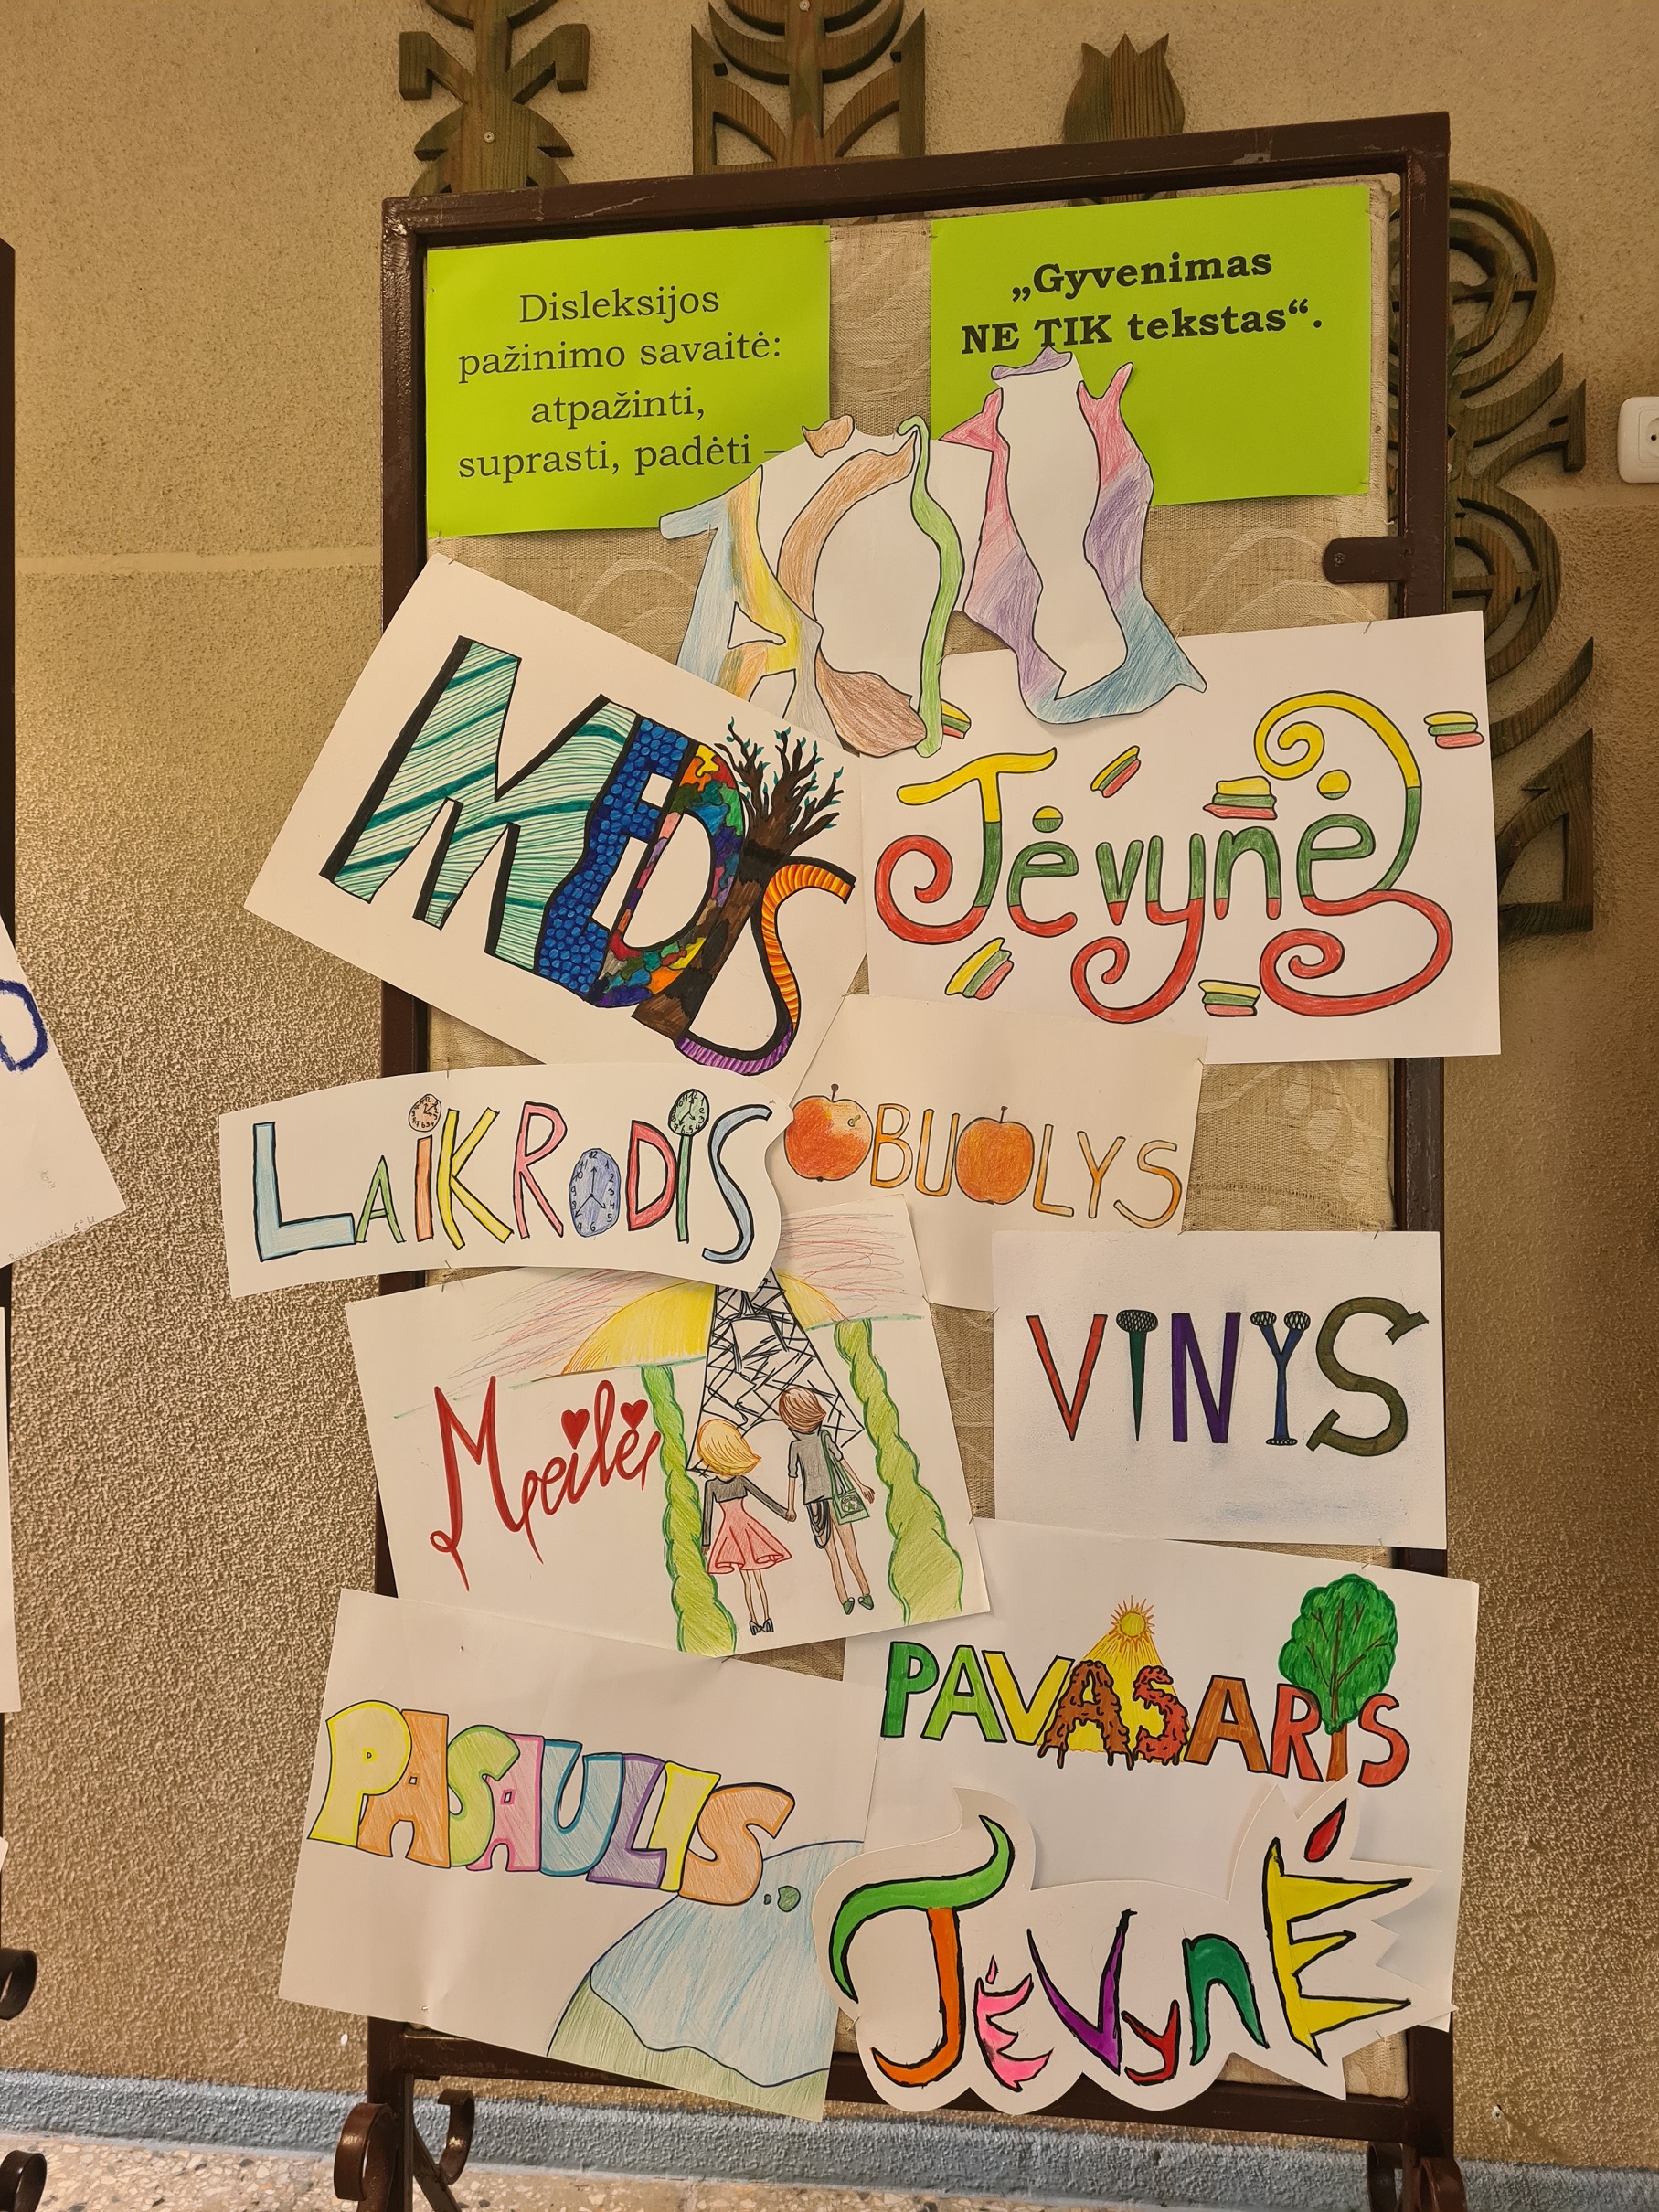 Disleksijos
pažinimo savaitė:
atpažinti,
suprasti, padėti –
„Gyvenimas
NE TIK tekstas“.
MEDIS
Tėvynė
LAiKRODiS
OBUOLYS
Meilė
VINYS
PAVASARIS
PASAULIS
TĖVynĖ